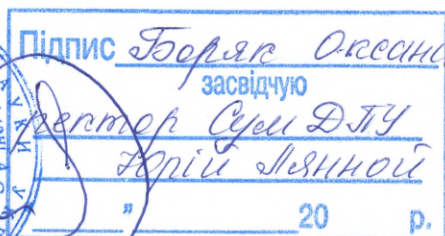 Підпис Боряк Оксани
засвідчую
ректор СумДПУ
Юрій Лянной
" 20 р.